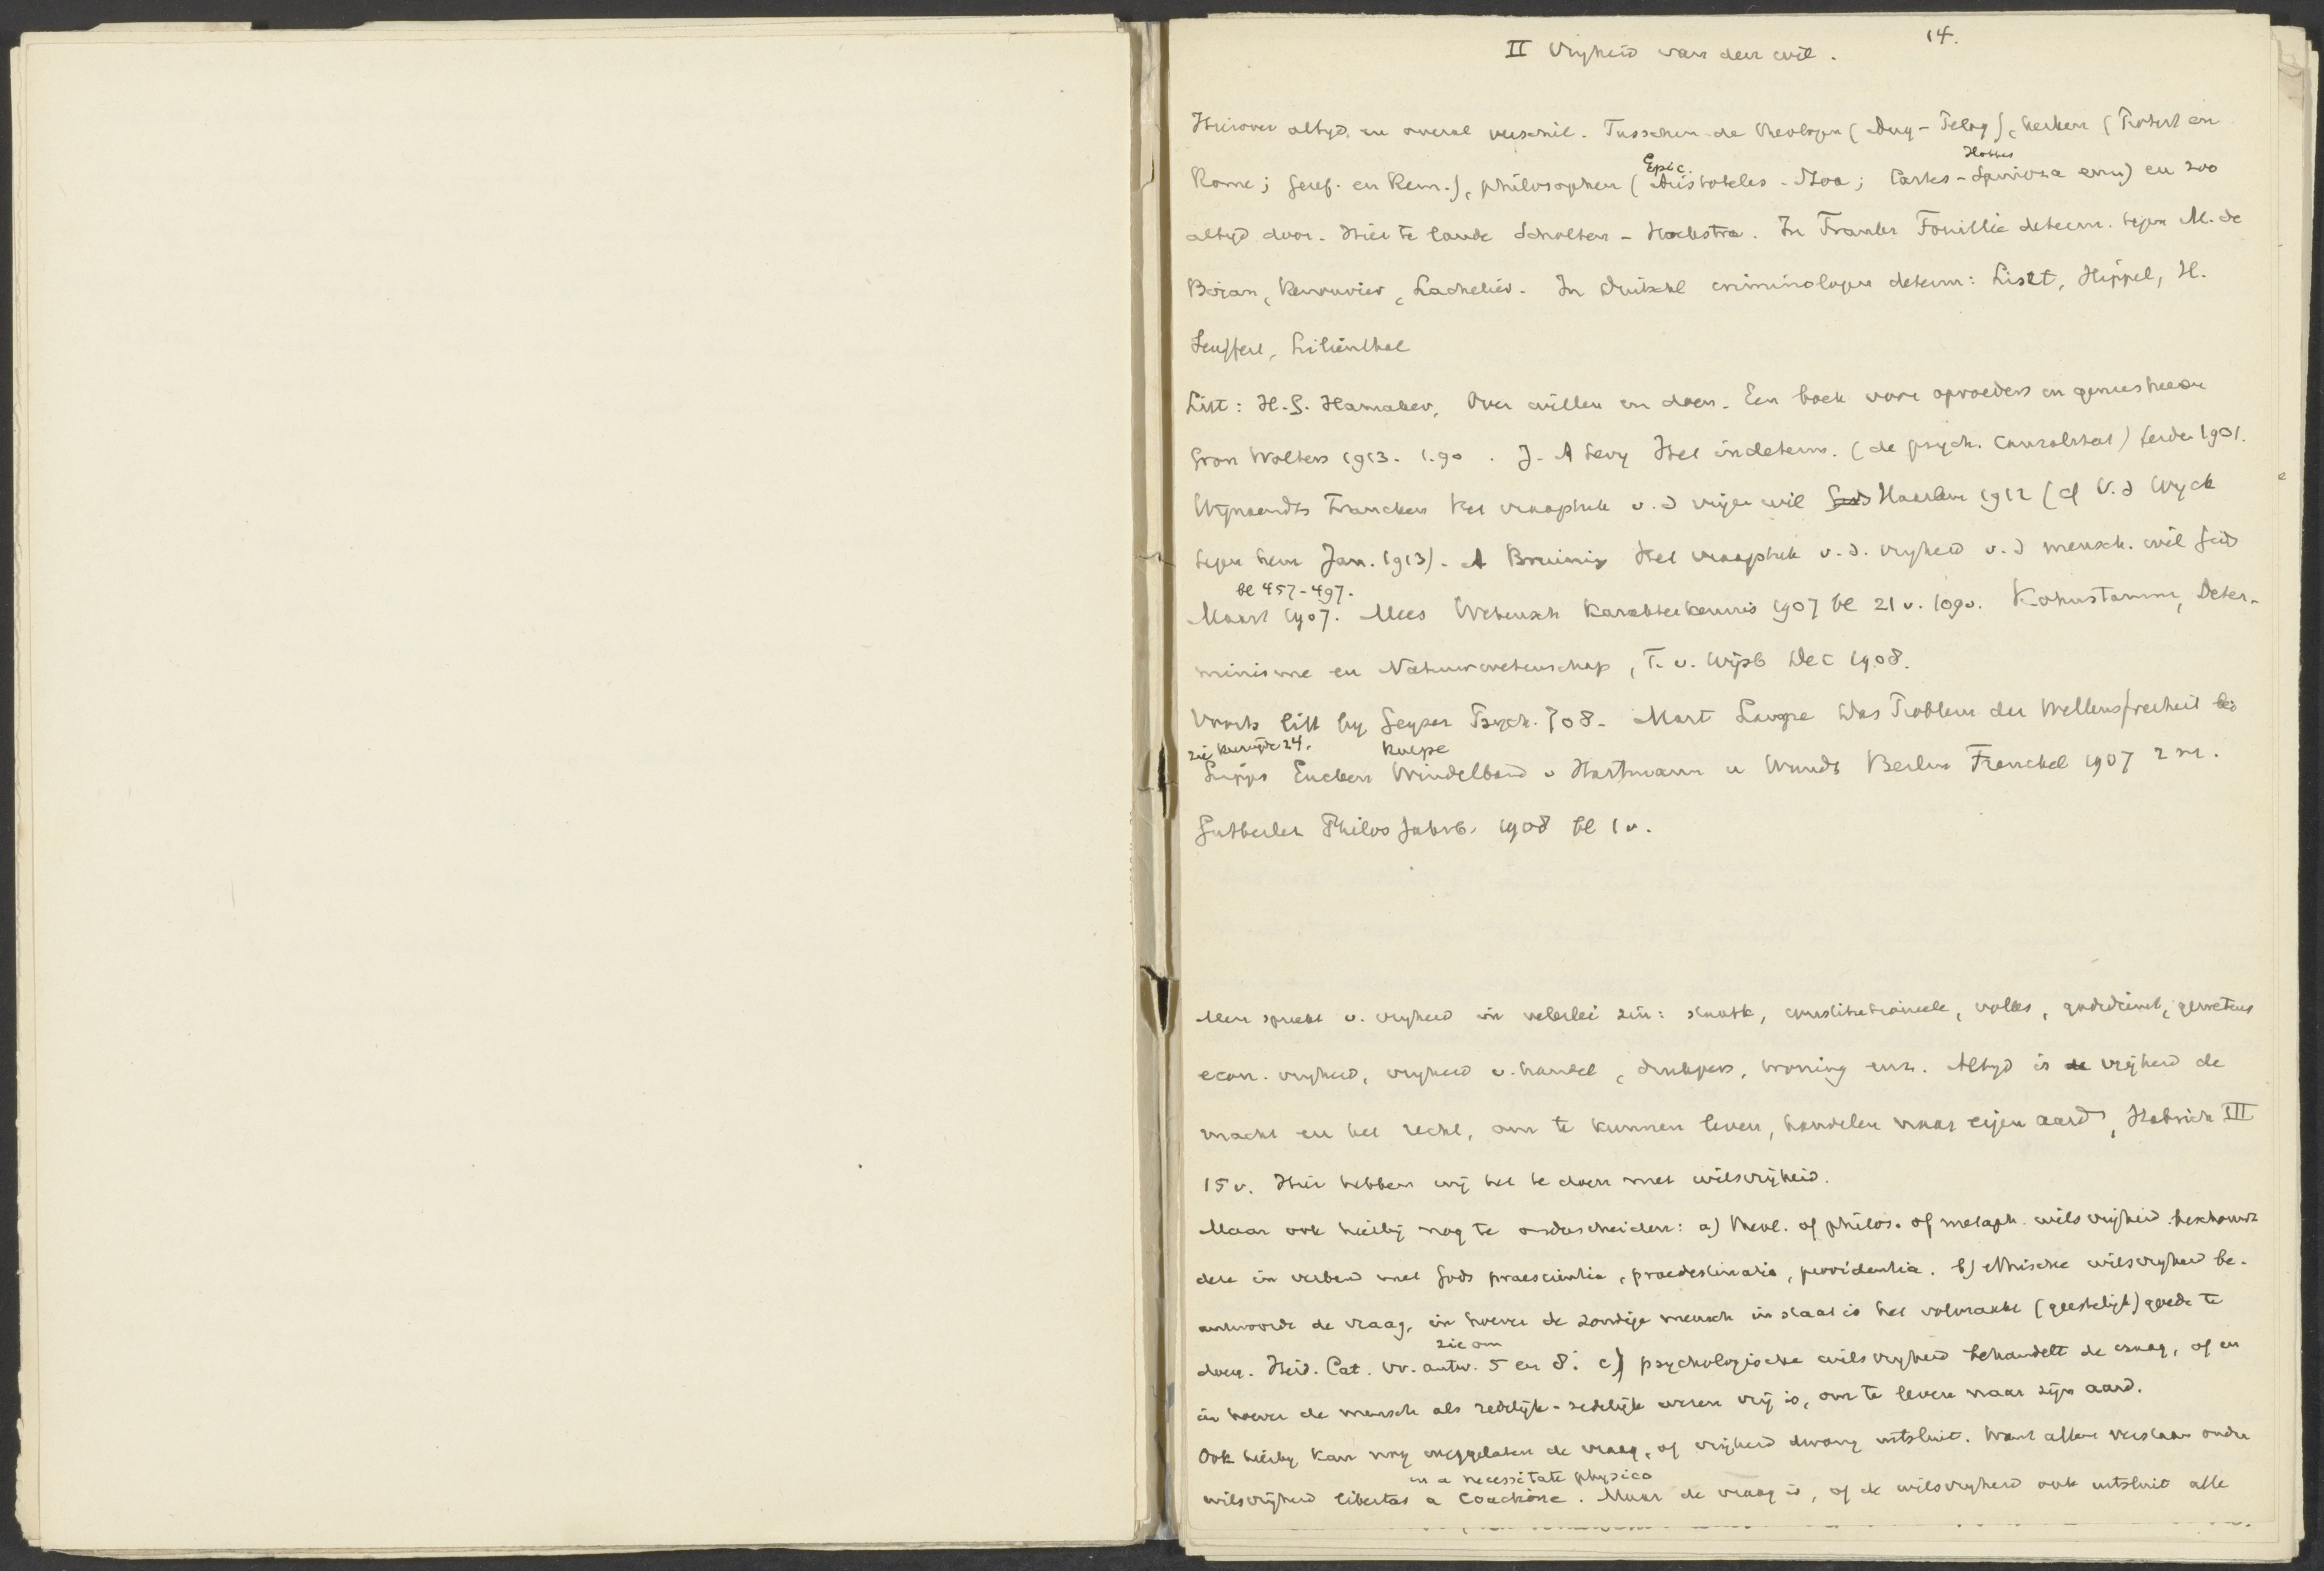 14.
II Vrijheid van den wil.
Hierover altijd en overal verschil. Tusschen de theologen (Aug - Pelag), kerken (Protest en
Rome; Geref. en Rem.), philosophen (Aristoteles - Stoa; Cartes - Spinoza enz) en zoo
Epic. Hobbes
altijd door. Hier te lande Scholten - Hoekstra. In Frankr Fouillée determ. tegen M. de
Biran, Renouvier, Lachelier. In Duitschl criminologen determ: Liszt, Hippel, H.
Seuffert, Lilienthal
Litt: H.G. Hamaker, Over willen en doen. Een boek voor opvoeders en geneesheeren
Gron Wolters 1913. 1.90. J. A Levy Het indeterm. (de psych. causaliteit) Leiden 1901.
Wijnaendts Francken Het vraagstuk v.d vrijen wil Haarlem 1912 (cf V.d Wyck
tegen hem Jan. 1913). A Bruining Het vraagstuk v.d. vrijheid v.d mensch. wil Gids
bl 457-497.
Maart 1907. Mees Wetensch Karakterkennis 1907 bl 21 v. 109 v. Kohnstamm, Deter-
minisme en Natuurwetenschap, T. v. Wijsb Dec 1908.
Voorts litt bij Geyser Psych. 708. Mart Lange Das Problem der Willensfreiheit bei
zie keerzijde 24. Kulpe
Lipps Eucken Windelband v Hartmann u Wundt Berlin Frenckel 1907 2 M.
Gutberlet Philos Jahrb. 1908 bl 1 v.
Men spreekt v. vrijheid in velerlei zin: staatk, constitutioneele, volks, godsdienst, gewetens
econ. vrijheid, vrijheid v. handel, drukpers, woning enz. Altijd is de vrijheid de
macht en het recht, om te kunnen leven, handelen naar eigen aard, III
15 v. Hier hebben wij het te doen met wilsvrijheid.
Maar ook hierbij nog te onderscheiden: a) theol. of philos. of metaph. wilsvrijheid beschouwt
deze in verband met Gods praescientia, praedestinatio, providentia. b) ethische wilsvrijheid be-
antwoordt de vraag, in hoever de zondige mensch in staat is het volmaakt (geestelijk) goede te
doen. Heid. Cat. vr. antw. 5 en 8. c) psychologische wilsvrijheid behandelt de vraag, of en
zie om
in hoever de mensch als redelijk-zedelijk wezen vrij is, om te leven naar zijn aard.
Ook hierbij kan nog weggelaten de vraag, of vrijheid dwang uitsluit. Want allen verstaan onder
en a necessitate physica
wilsvrijheid libertas a coactione. Maar de vraag is, of de wilsvrijheid ook uitsluit alle